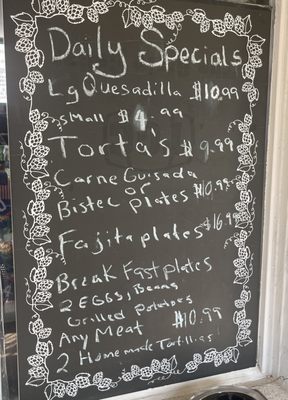 Daily Specials
Lg Quesadilla $10.99
small $4.99
Torta's $9.99
Carne Guisada
or
Bistec plates $10.99
Fajita plates $16.99
Break Fast plates
2 EGGS, Beans
Grilled Potatoes
Any Meat $10.99
2 Home made Tortillas